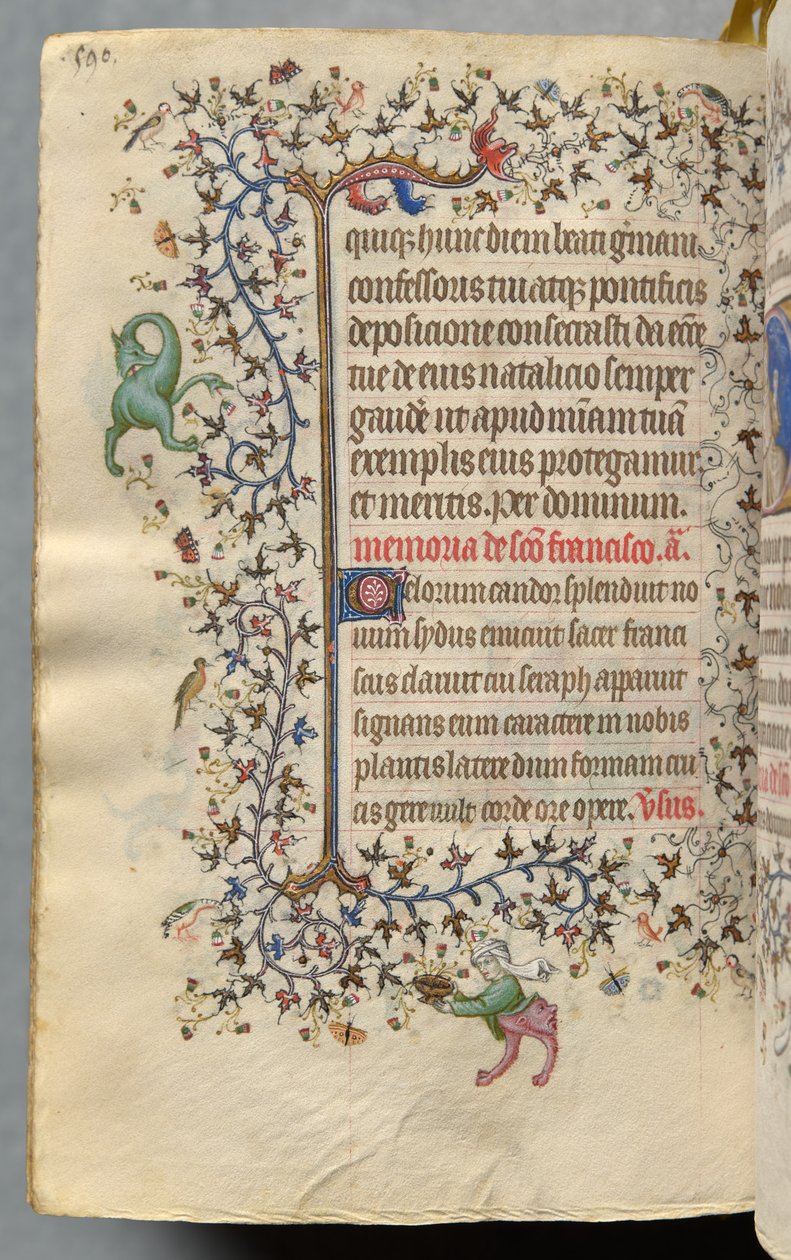 590.
quiq; hunc diem beati g̅mani
confessoris tui atq; pontificis
deposicione consecrasti da ecc̅e
tue de eius natalicio semper
gaud̅e ut apud m̅iam tuā
exemplis eius protegamur
et meritis. Per dominum.
memoria de sc̅o francisco. a̅.
Celorum candor splenduit no
uum sydus emicuit sacer franci
scus claruit cui seraph apparuit
signans eum caractere in nobis
plantis latere dum formam cru
cis gere uult corde ore opere. V̅sus.